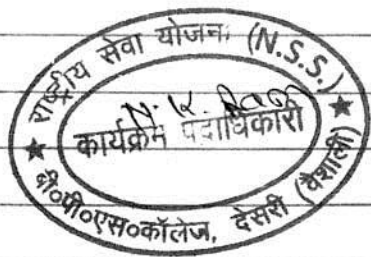 राष्ट्रीय सेवा योजना (N.S.S.)
N. K.
कार्यक्रम पदाधिकारी
बी०पी०एस०कॉलेज, देसरी (वैशाली)